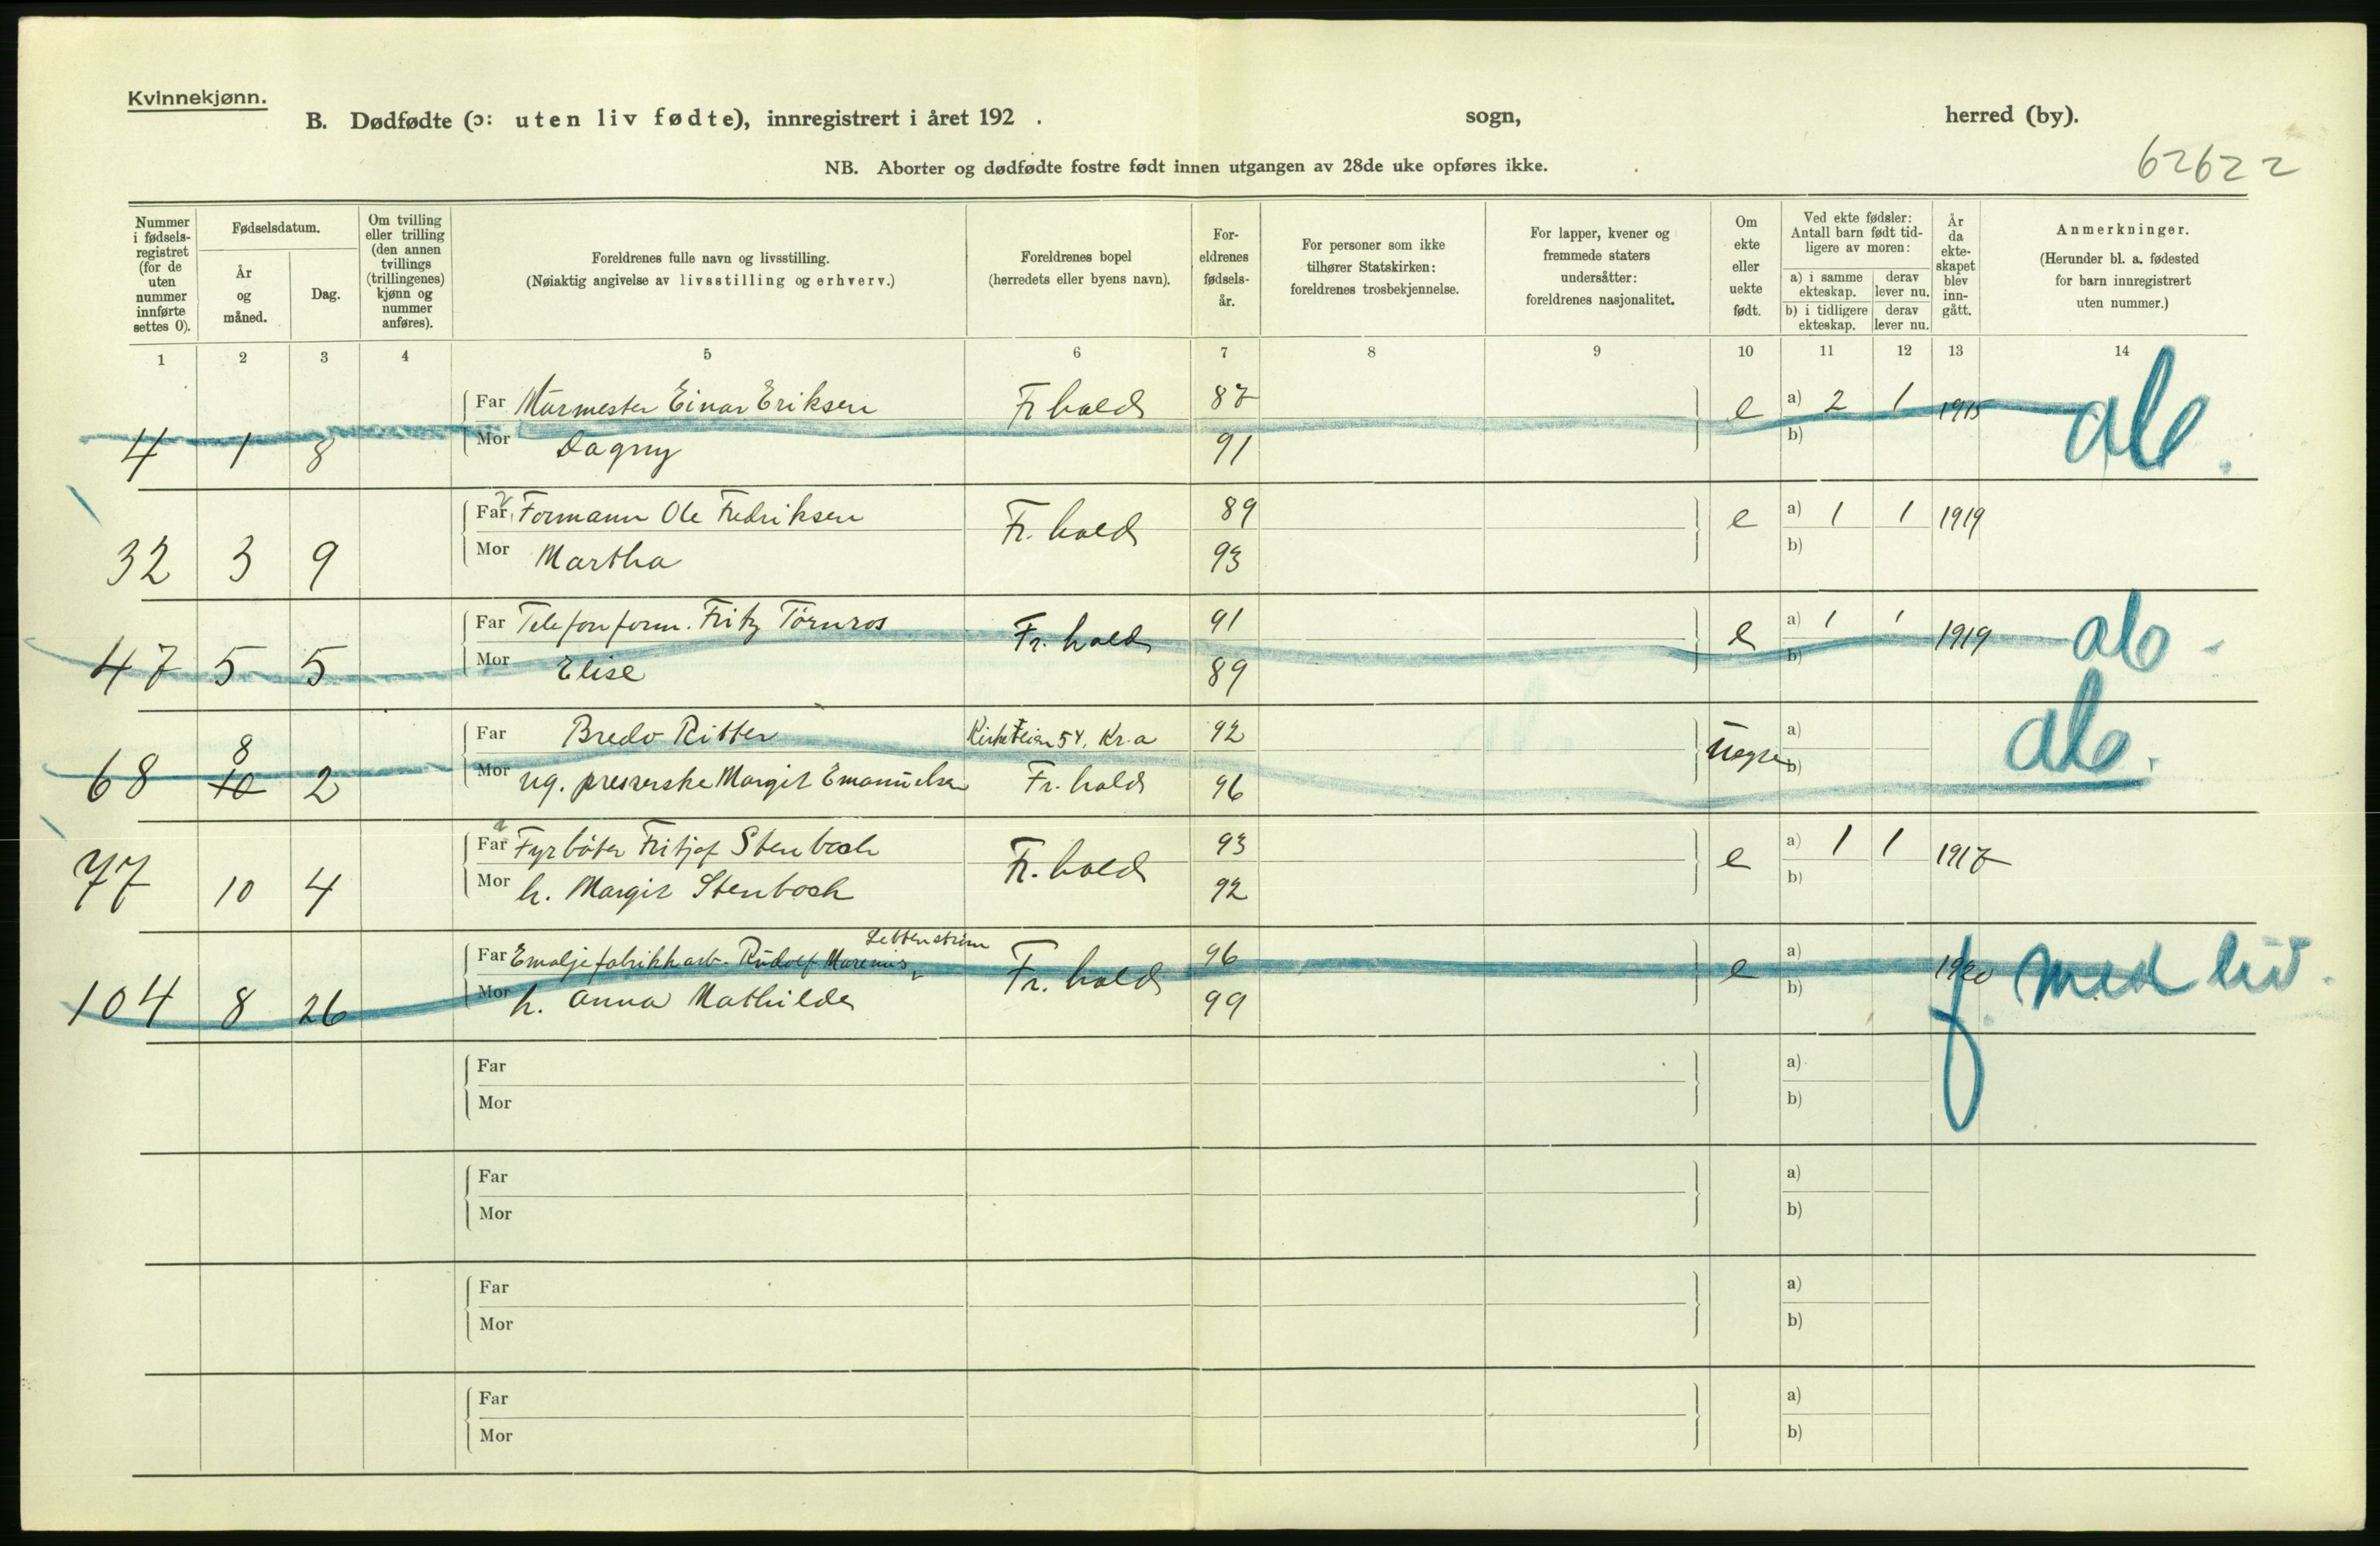 Kvinnekjønn.
B. Dødfødte (ɔ: uten liv fødte), innregistrert i året 192 . sogn, herred (by).
NB. Aborter og dødfødte fostre født innen utgangen av 28de uke opføres ikke.
62622
Nummer i fødsels-registret (for de uten nummer innførte settes 0).
Fødselsdatum.
År og måned.
Dag.
Om tvilling eller trilling (den annen tvillings (trillingenes) kjønn og nummer anføres).
Foreldrenes fulle navn og livsstilling.
(Nøiaktig angivelse av livsstilling og erhverv.)
Foreldrenes bopel
(herredets eller byens navn).
For-eldrenes fødsels-år.
For personer som ikke tilhører Statskirken: foreldrenes trosbekjennelse.
For lapper, kvener og fremmede staters undersåtter: foreldrenes nasjonalitet.
Om ekte eller uekte født.
Ved ekte fødsler: Antall barn født tid-ligere av moren:
a) i samme ekteskap.
derav lever nu.
b) i tidligere ekteskap.
derav lever nu.
År da ekte-skapet blev inn-gått.
Anmerkninger.
(Herunder bl. a. fødested for barn innregistrert uten nummer.)
1 2 3 4 5 6 7 8 9 10 11 12 13 14
Far Murmester Einar Eriksen Fr hald 87 e a) 2 1 1915 ab.
4 1 8 Mor Dagny 91 b)
Far Formann Ole Fredriksen Fr. hald 89 e a) 1 1 1919
32 3 9 Mor Martha 93 b)
Far Telefonform. Fritz Törnros Fr. hald 91 e a) 1 1 1919 ab.
47 5 5 Mor Elise 89 b)
Far Bredo Ritter Kirkeveien 54, Kr.a 92 Uegte a) ab.
68 8 10 2 Mor ug. presserske Margit Emanuelsen Fr. hald 96 b)
Far Fyrbøter Fritjof Stenbock Fr. hald 93 e a) 1 1 1917
77 10 4 Mor h. Margit Stenbock 92 b)
Far Emaljefabrikkarb. Rudolf Marenius Fr. hald 96 e a) 1920 f. med liv.
104 8 26 Mor h. Anna Mathilde 99 b)
Far a)
Mor b)
Far a)
Mor b)
Far a)
Mor b)
Far a)
Mor b)